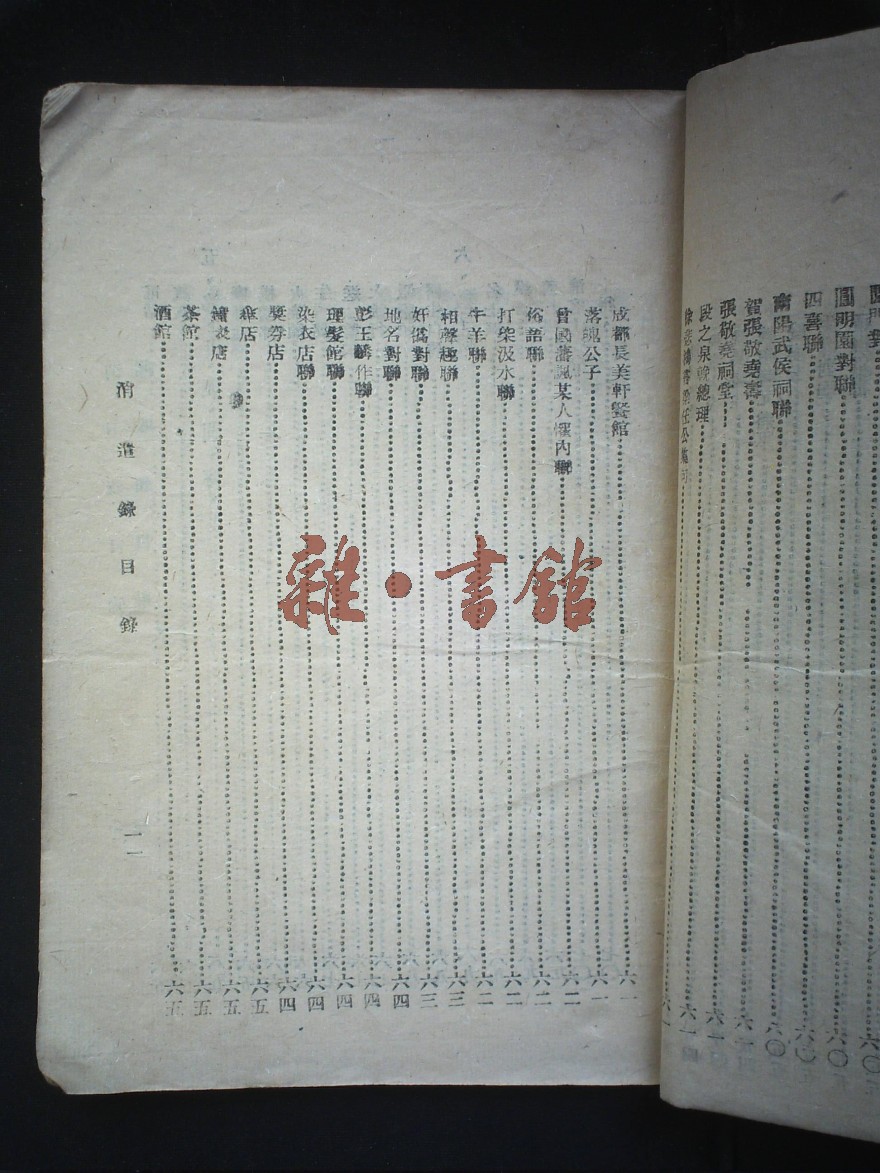 圓明園對聯……六〇
四喜聯……六〇
南陽武侯祠聯……六〇
賀張敬堯壽……六一
張敬堯祠堂……六一
段之泉晚總理……六一
成都長美軒餐館……六一
落魄公子……六一
曾國藩諷某人懼內聯……六二
俗語聯……六二
打柴汲水聯……六二
牛羊聯……六二
相聲趣聯……六三
奸僞對聯……六三
地名對聯……六四
彭玉麟作聯……六四
理髮館聯……六四
染衣店聯……六四
獎券店……六四
傘店……六五
鐘表店……六五
茶館……六五
酒館……六五
消遣錄目錄
一一
雜·書館